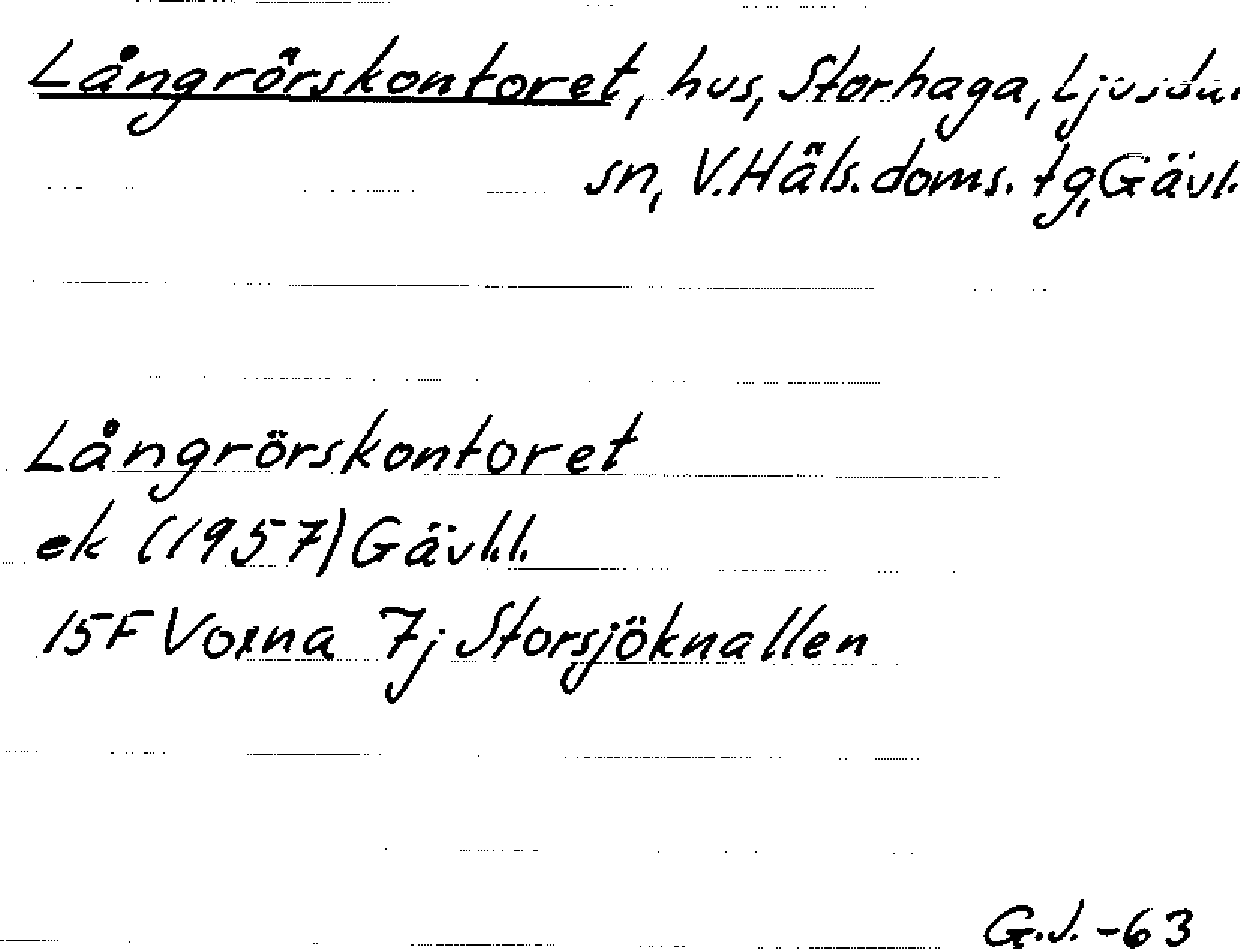 Långrörskontoret, hus, Storhaga, Ljusdal
sn, V.Häls.doms.tg, Gävl.
Långrörskontoret
ek (1957) Gävl.l.
15F Voxna 7j Storsjöknallen
G.J. -63